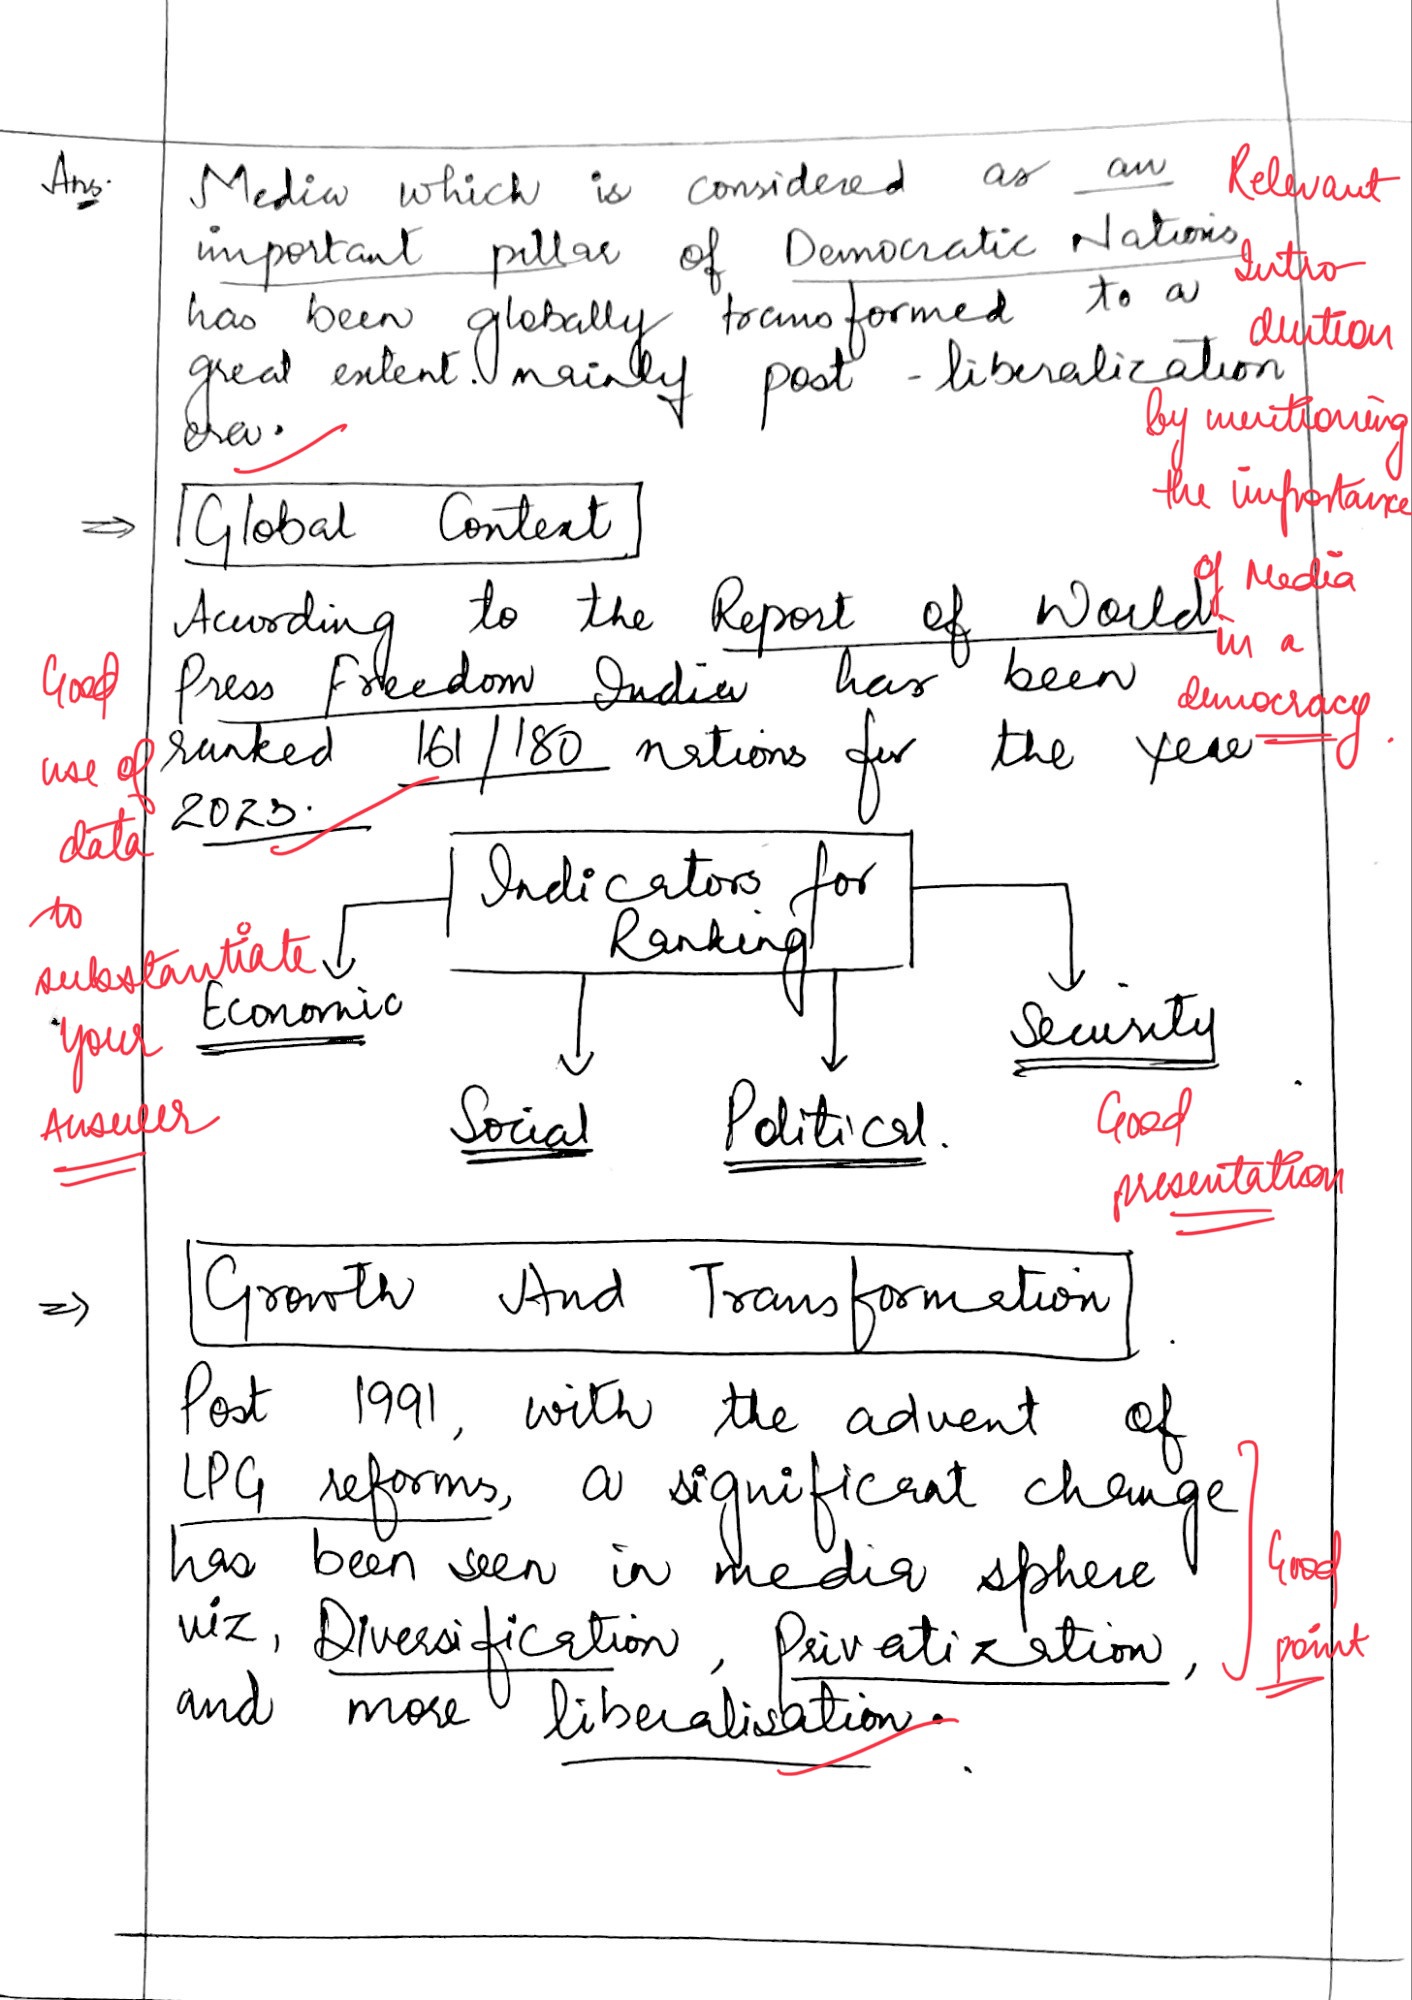 Ans.
Media which is considered as an
important pillar of Democratic Nations
has been globally transformed to a
great extent. mainly post - liberalization
era.
Relevant
Intro
duction
by mentioning
the importance
of Media
in a
democracy.
⇒ Global Context
According to the Report of World
Press Freedom India has been
ranked 161/180 nations for the year
2023.
Good
use of
data
to
substantiate
your
answer
Indicators for
Ranking
Economic
Social
Political.
Security
Good
presentation
⇒ Growth And Transformation
Post 1991, with the advent of
LPG reforms, a significant change
has been seen in media sphere
viz, Diversification, Privatization,
and more liberalisation.
Good
point